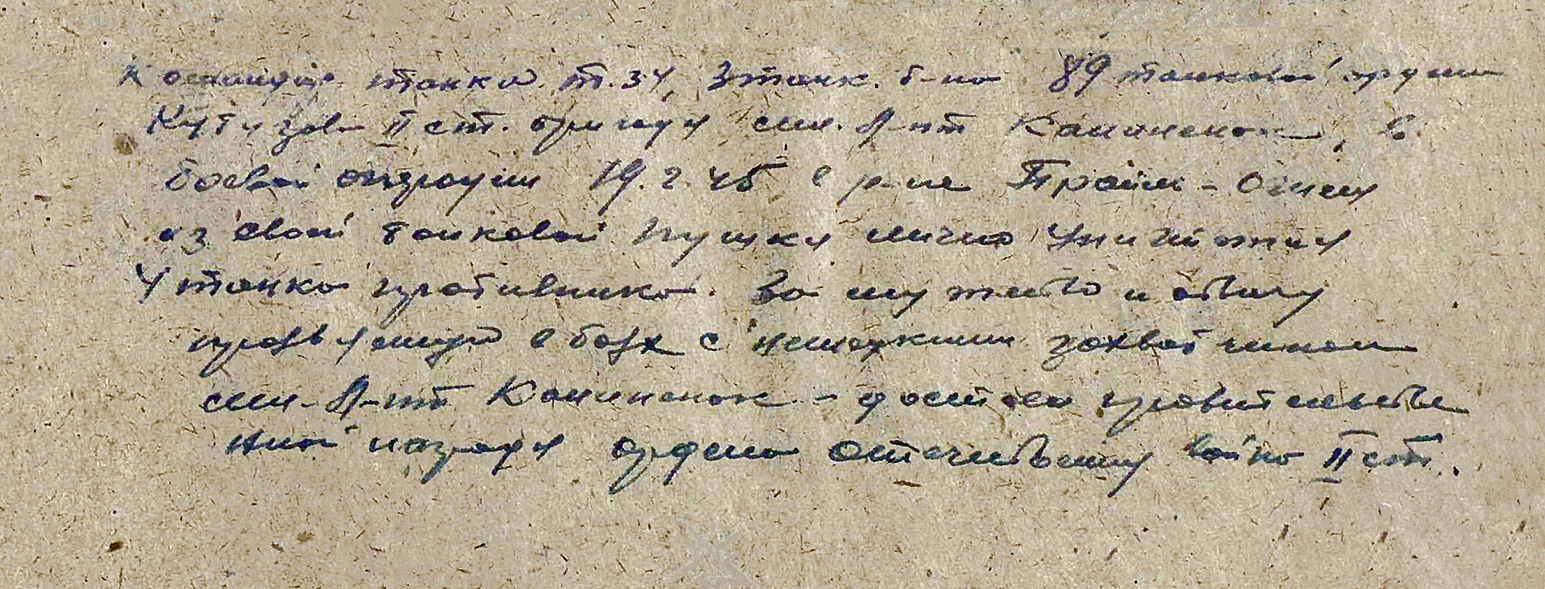 Командир танка т.34, 3 танк. б-на 89 танковой ордена
Кутузова II ст. бригады мл. л-нт Калиненок, в
боевой операции 19.2.45 в р-не огнем
из своей танковой пушки лично уничтожил
4 танка противника. За мужество и отвагу
проявленную в боях с немецкими захватчиками
мл. л-нт Калиненок - достоин правительстве
нной награды ордена Отечественной война II ст.